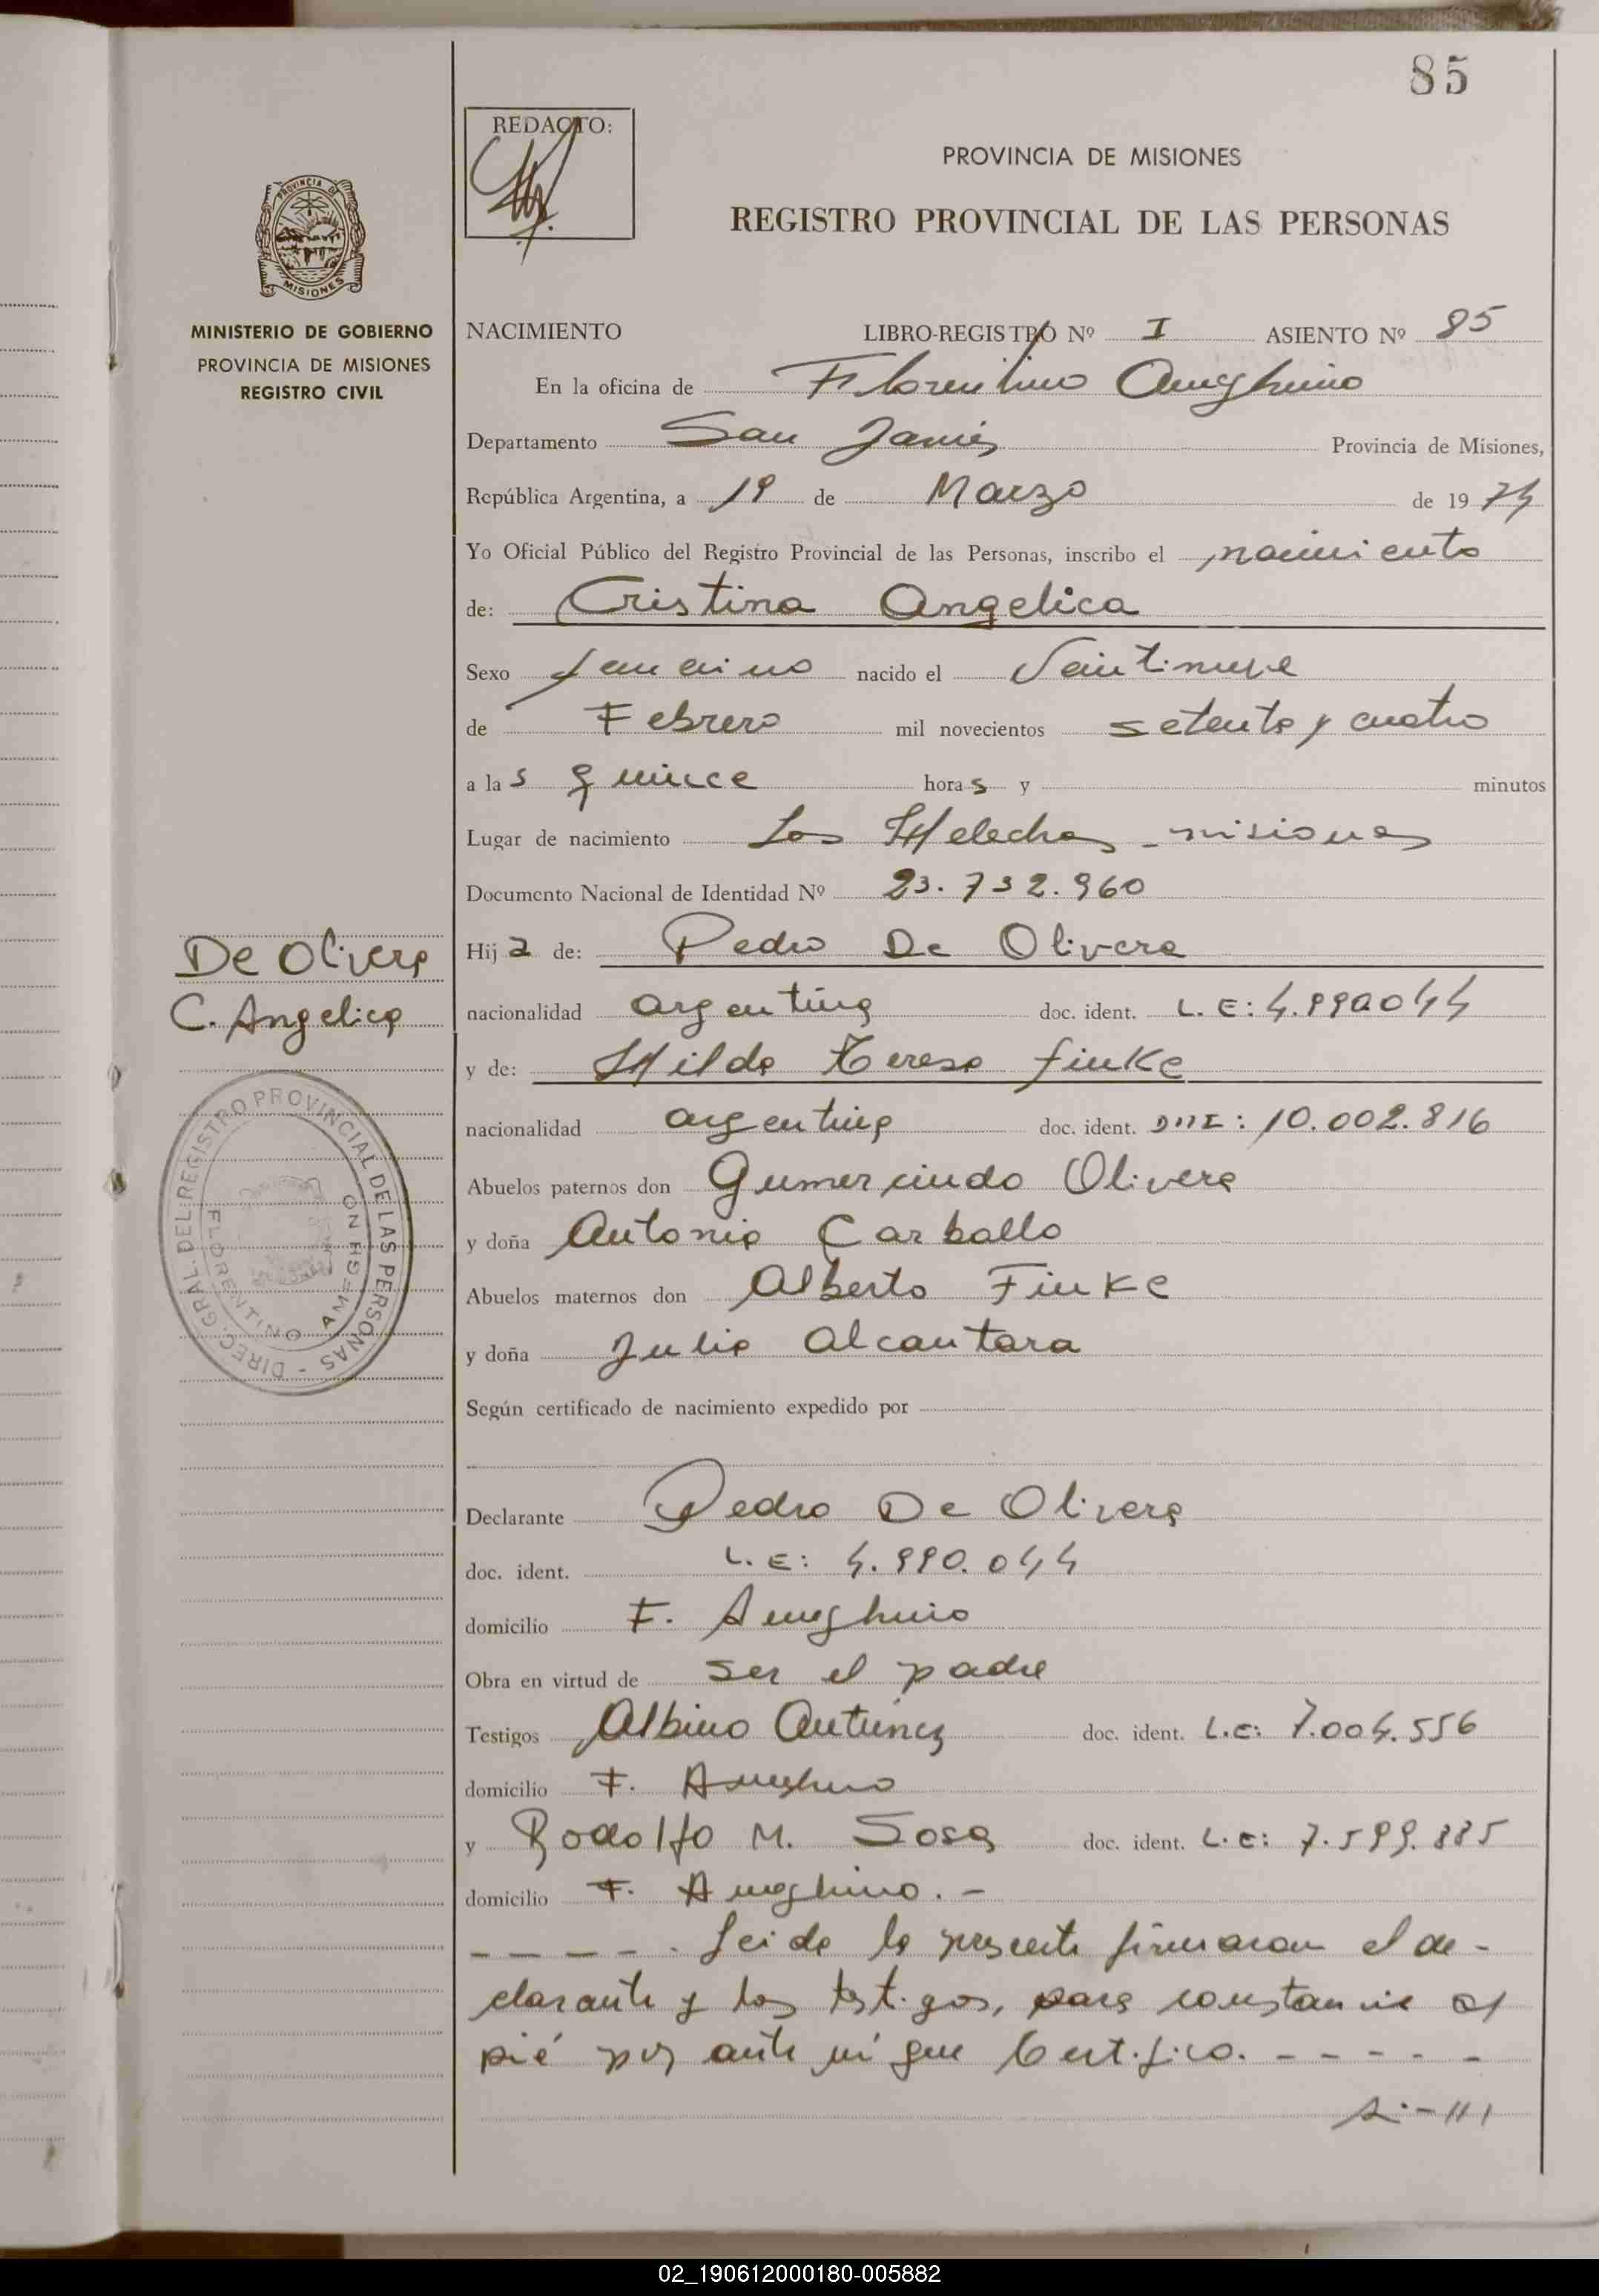 85
REDACTO:
PROVINCIA DE MISIONES
REGISTRO PROVINCIAL DE LAS PERSONAS
PROVINCIA DE
MISIONES
MINISTERIO DE GOBIERNO
PROVINCIA DE MISIONES
REGISTRO CIVIL
NACIMIENTO LIBRO-REGISTRO Nº I ASIENTO Nº 85
En la oficina de Florentino Ameghino
Departamento San Javier Provincia de Misiones,
República Argentina, a 19 de Marzo de 1974
Yo Oficial Público del Registro Provincial de las Personas, inscribo el nacimiento
de: Cristina Angelica
Sexo femenino nacido el Veintinueve
de Febrero mil novecientos setenta y cuatro
a las quince horas y minutos
Lugar de nacimiento Los Helechos - misiones
Documento Nacional de Identidad Nº 23.732.960
De Olivera
C. Angelica
Hija de: Pedro De Olivera
nacionalidad argentina doc. ident. L.E: 4.990.044
y de: Hilda Teresa Finke
nacionalidad argentina doc. ident. DNI: 10.002.816
DIREC. GRAL. DEL REGISTRO PROVINCIAL DE LAS PERSONAS -
FLORENTINO AMEGHINO
Abuelos paternos don Gumercindo Olivera
y doña Antonia Carballo
Abuelos maternos don Alberto Finke
y doña Julia Alcantara
Según certificado de nacimiento expedido por
Declarante Pedro De Olivera
doc. ident. L.E: 4.990.044
domicilio F. Ameghino
Obra en virtud de ser el padre
Testigos Albino Antunez doc. ident. L.E: 7.004.556
domicilio F. Ameghino
y Rodolfo M. Sosa doc. ident. L.E: 7.599.885
domicilio F. Ameghino. -
- - - - . Leida la presente firmaron el de-
clarante y los testigos, para constancia al
pié por ante mí que Certifico. - - - - -
02_190612000180-005882